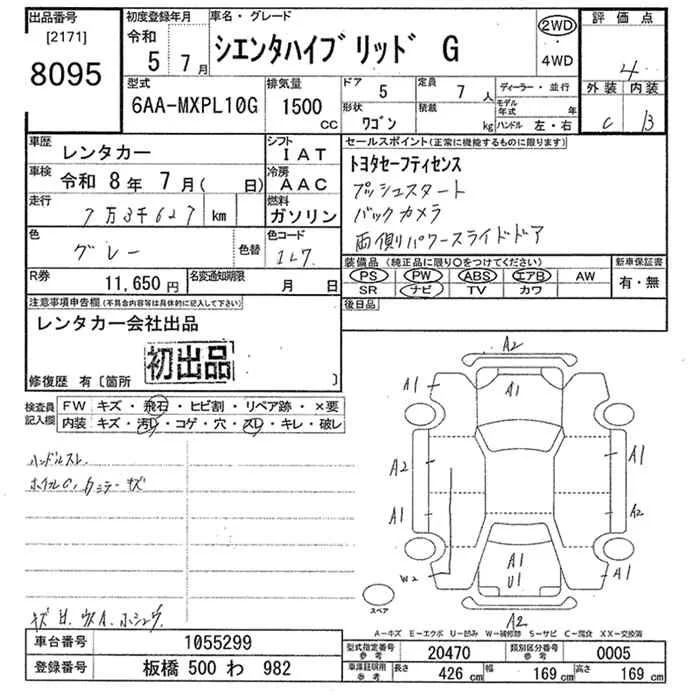 出品番号
[2171]
8095
初度登録年月
令和
5 7月
車名・グレード
シエンタハイブリッド G
2WD
・
4WD
評価点
4
外装 内装
C B
型式
6AA-MXPL10G
排気量
1500
CC
ドア
5
定員
7人
形状
ワゴン
積載
kg
ディーラー・並行
モデル年式 年
ハンドル 左・右
車歴
レンタカー
シフト
IAT
車検
令和 8年 7月( 日)
冷房
AAC
走行
7万3千627 km
燃料
ガソリン
色
グレー
色替
色コード
1L7
R券
11,650円
名変通知期限
月 日
セールスポイント(正常に機能するものに限ります)
トヨタセーフティセンス
プッシュスタート
バックカメラ
両側パワースライドドア
装備品(純正品に限り○をつけてください)
PS PW ABS エアB AW
SR ナビ TV カワ
新車保証書
有・無
後日品
注意事項申告欄(不具合内容等は具体的に記入して下さい)
レンタカー会社出品
初出品
修復歴 有〔箇所 〕
検査員
記入欄
FW キズ・飛石・ヒビ割・リペア跡・×要
内装 キズ・汚レ・コゲ・穴・スレ・キレ・破レ
ハンドルスレ
A2
A1
A1
A2
A1
A1
A2
W2
A1
U1
A1
A2
スペア
A−キズ E−エクボ U−凹み W−補修跡 S−サビ C−腐食 XX−交換済
車台番号
1055299
登録番号
板橋 500 わ 982
型式指定番号
参考
20470
類別区分番号
参考
0005
車庫証明用
参考
長さ
426 cm
幅
169 cm
高さ
169 cm